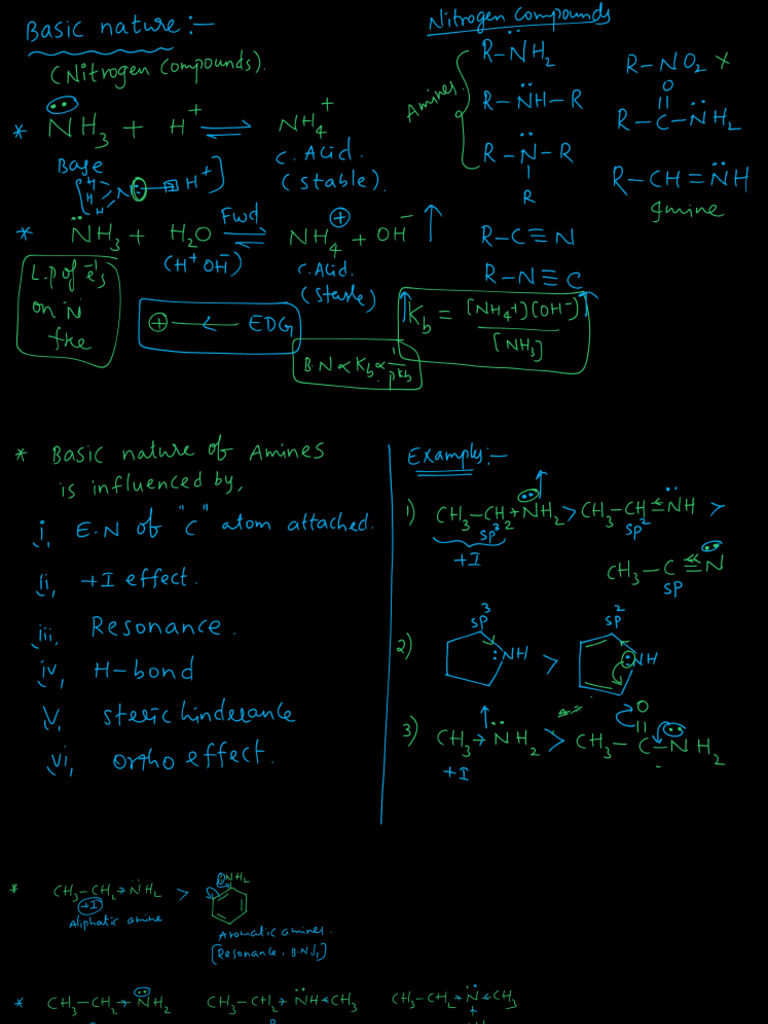 Basic nature :-
(Nitrogen Compounds).
* NH3 + H+ ⇌ NH4+
Base
C. Acid.
(stable).
H
H N: □ H+]
H
* NH3 + H2O ⇌ NH4 + OH- ↑
Fwd
⊕
(H+ OH-)
C. Acid.
(stable)
L.p of e-s
on N
⊕ ← EDG
Kb = [NH4+][OH-] / [NH3]
B.N ∝ Kb ∝ 1/pKb
Nitrogen Compounds
Amines
R-NH2
R-NH-R
R-N-R
R
R-C≡N
R-N≡C
R-NO2 ×
O
R-C-NH2
R-CH=NH
imine
* Basic nature of Amines
is influenced by,
i, E.N of "C" atom attached.
ii, +I effect.
iii, Resonance.
iv, H-bond
v, steric hinderance
vi, ortho effect.
Examples:-
1) CH3-CH2→NH2 > CH3-CH=NH >
sp3
sp2
+I
CH3-C≡N
sp
2) sp3 sp2
:NH > :NH
3) CH3→NH2 > CH3-C-NH2
O
+I
* CH3-CH2→NH2 > NH2
+I
Aliphatic amine
Aromatic amines.
[Resonance, B.N↓]
* CH3-CH2→NH2 CH3-CH2→NH←CH3 CH3-CH2→N←CH3